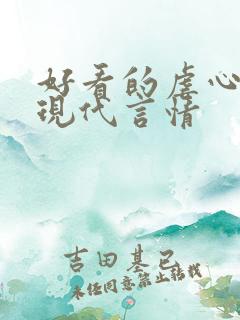 好看的虐心
現代言情
吉田基已
未经同意禁止转载